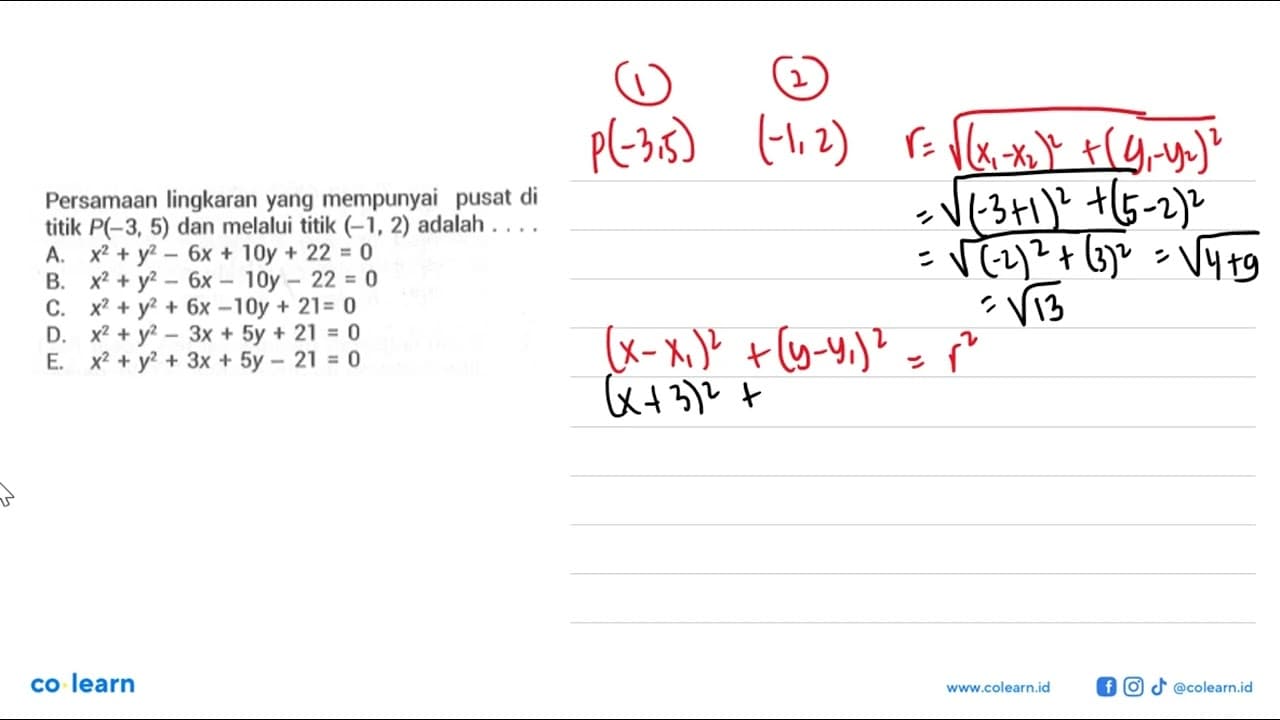 Persamaan lingkaran yang mempunyai pusat di
titik P(–3, 5) dan melalui titik (–1, 2) adalah . . . .
A. x² + y² – 6x + 10y + 22 = 0
B. x² + y² – 6x – 10y – 22 = 0
C. x² + y² + 6x –10y + 21= 0
D. x² + y² – 3x + 5y + 21 = 0
E. x² + y² + 3x + 5y – 21 = 0
① ②
P(-3,5) (-1,2) r = √(x₁-x₂)² + (y₁-y₂)²
= √(-3+1)² + (5-2)²
= √(-2)² + (3)² = √4+9
= √13
(x-x₁)² + (y-y₁)² = r²
(x+3)² +
co·learn
www.colearn.id @colearn.id